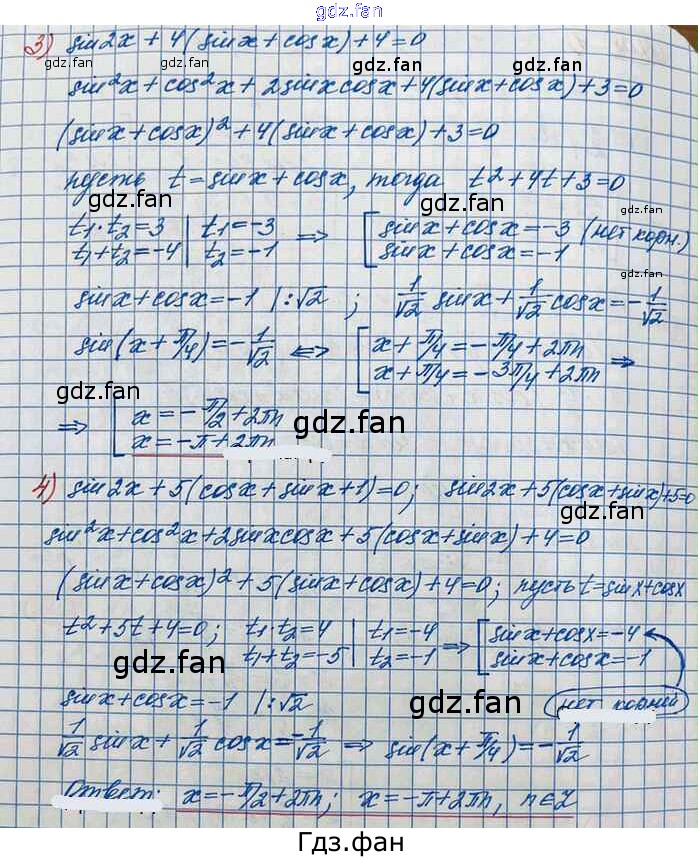 gdz.fan
3) sin2x + 4(sinx + cosx) + 4 = 0
gdz.fan gdz.fan gdz.fan
sin²x + cos²x + 2sinxcosx + 4(sinx + cosx) + 3 = 0
(sinx + cosx)² + 4(sinx + cosx) + 3 = 0
пусть t = sinx + cosx, тогда t² + 4t + 3 = 0
gdz.fan gdz.fan
t₁·t₂ = 3 | t₁ = -3 ⇒ [ sinx + cosx = -3 (нет корн.)
t₁ + t₂ = -4 | t₂ = -1 [ sinx + cosx = -1
gdz.fan
sinx + cosx = -1 |:√2 ; 1/√2 sinx + 1/√2 cosx = -1/√2
sin(x + π/4) = -1/√2 ⇔ [ x + π/4 = -π/4 + 2πn ⇒
[ x + π/4 = -3π/4 + 2πn
gdz.fan gdz.fan
⇒ [ x = -π/2 + 2πn
[ x = -π + 2πn
4) sin2x + 5(cosx + sinx + 1) = 0; sin2x + 5(cosx + sinx) + 5 = 0
gdz.fan
sin²x + cos²x + 2sinxcosx + 5(cosx + sinx) + 4 = 0
(sinx + cosx)² + 5(sinx + cosx) + 4 = 0; пусть t = sinx + cosx
t² + 5t + 4 = 0; t₁·t₂ = 4 | t₁ = -4 ⇒ [ sinx + cosx = -4
t₁ + t₂ = -5 | t₂ = -1 [ sinx + cosx = -1
gdz.fan
sinx + cosx = -1 |:√2 gdz.fan нет корней
1/√2 sinx + 1/√2 cosx = -1/√2 ⇒ sin(x + π/4) = -1/√2
Ответ: x = -π/2 + 2πn; x = -π + 2πn, n∈Z
Гдз.фан